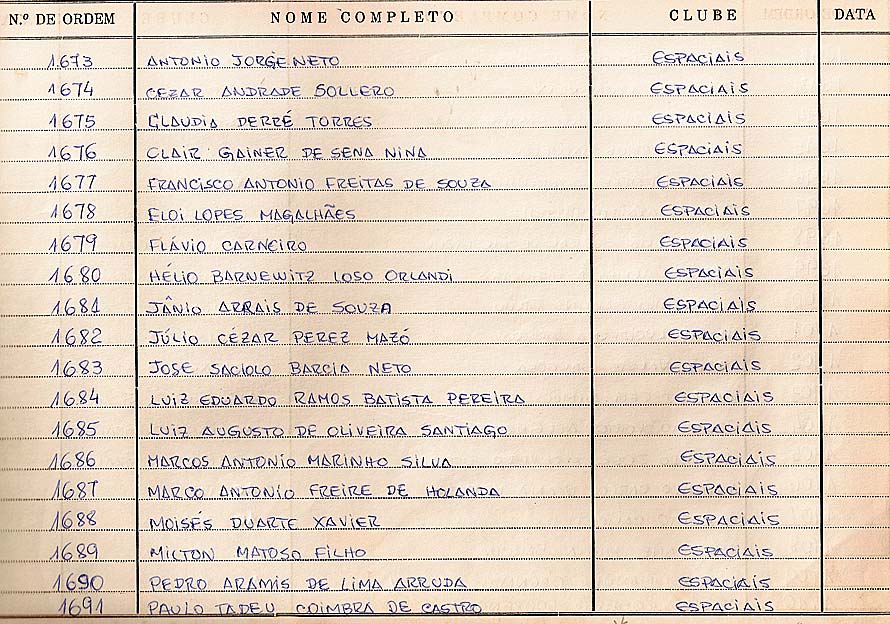 N.º DE ORDEM NOME COMPLETO CLUBE DATA
1673 ANTONIO JORGE NETO ESPACIAIS
1674 CEZAR ANDRADE SOLLERO ESPACIAIS
1675 CLAUDIA DERRÉ TORRES ESPACIAIS
1676 CLAIR GAINER DE SENA NINA ESPACIAIS
1677 FRANCISCO ANTONIO FREITAS DE SOUZA ESPACIAIS
1678 ELOI LOPES MAGALHÃES ESPACIAIS
1679 FLÁVIO CARNEIRO ESPACIAIS
1680 HÉLIO BARNEWITZ LOSO ORLANDI ESPACIAIS
1681 JÂNIO ARRAIS DE SOUZA ESPACIAIS
1682 JÚLIO CÉZAR PEREZ MAZÓ ESPACIAIS
1683 JOSE SACIOLO BARCIA NETO ESPACIAIS
1684 LUIZ EDUARDO RAMOS BATISTA PEREIRA ESPACIAIS
1685 LUIZ AUGUSTO DE OLIVEIRA SANTIAGO ESPACIAIS
1686 MARCOS ANTONIO MARINHO SILVA ESPACIAIS
1687 MARCO ANTONIO FREIRE DE HOLANDA ESPACIAIS
1688 MOISÉS DUARTE XAVIER ESPACIAIS
1689 MILTON MATOSO FILHO ESPACIAIS
1690 PEDRO ARAMIS DE LIMA ARRUDA ESPACIAIS
1691 PAULO TADEU COIMBRA DE CASTRO ESPACIAIS